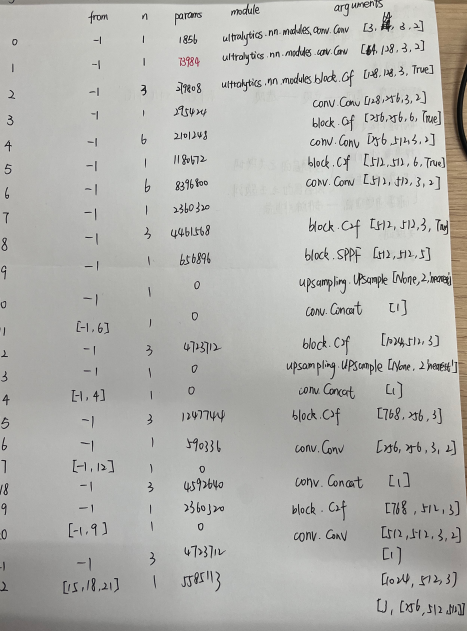 from n params module arguments
0 -1 1 1856 ultralytics.nn.modules.conv.Conv [3, 64, 3, 2]
1 -1 1 73984 ultralytics.nn.modules.conv.Conv [64, 128, 3, 2]
2 -1 3 279808 ultralytics.nn.modules block.C2f [128, 128, 3, True]
3 -1 1 295424 conv.Conv [128, 256, 3, 2]
4 -1 6 2101248 block.C2f [256, 256, 6, True]
5 -1 1 1180672 conv.Conv [256, 512, 3, 2]
6 -1 6 8396800 block.C2f [512, 512, 6, True]
7 -1 1 2360320 conv.Conv [512, 512, 3, 2]
8 -1 3 4461568 block.C2f [512, 512, 3, True]
9 -1 1 656896 block.SPPF [512, 512, 5]
0 -1 1 0 upsampling.Upsample [None, 2 'nearest']
1 [-1, 6] 1 0 conv.Concat [1]
2 -1 3 4723712 block.C2f [1024, 512, 3]
3 -1 1 0 upsampling.Upsample [None, 2 'nearest']
4 [-1, 4] 1 0 conv.Concat [1]
5 -1 3 1247744 block.C2f [768, 256, 3]
6 -1 1 590336 conv.Conv [256, 256, 3, 2]
7 [-1, 12] 1 0 conv.Concat [1]
18 -1 3 4592640 block.C2f [768, 512, 3]
9 -1 1 2360320 conv.Conv [512, 512, 3, 2]
0 [-1, 9] 1 0 [1]
1 -1 3 4723712 [1024, 512, 3]
2 [15, 18, 21] 1 5585113 [1, [256, 512, 512]]